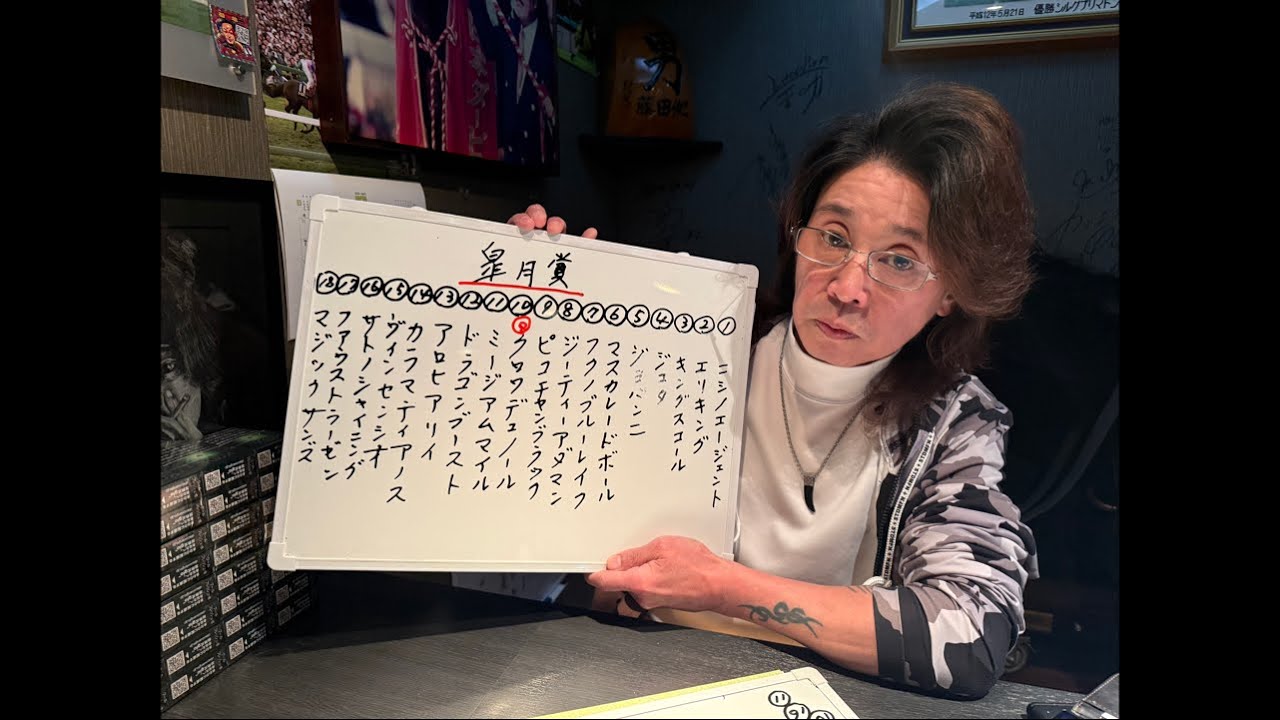 平成12年5月21日 優勝シルクプリマドンナ
男
藤田伸二
皐月賞
① ニシノエージェント
② エリキング
③ キングスコール
④ ジュタ
⑤ ジョバンニ
⑥ マスカレードボール
⑦ フクノブルーレイク
⑧ ジーティーアダマン
⑨ ピコチャンブラック
⑩ ◎ クロワデュノール
⑪ ミュージアムマイル
⑫ ドラゴンブースト
⑬ アロヒアリイ
⑭ カラマティアノス
⑮ ヴィンセンシオ
⑯ サトノシャイニング
⑰ ファウストラーゼン
⑱ マジックサンズ
⑪